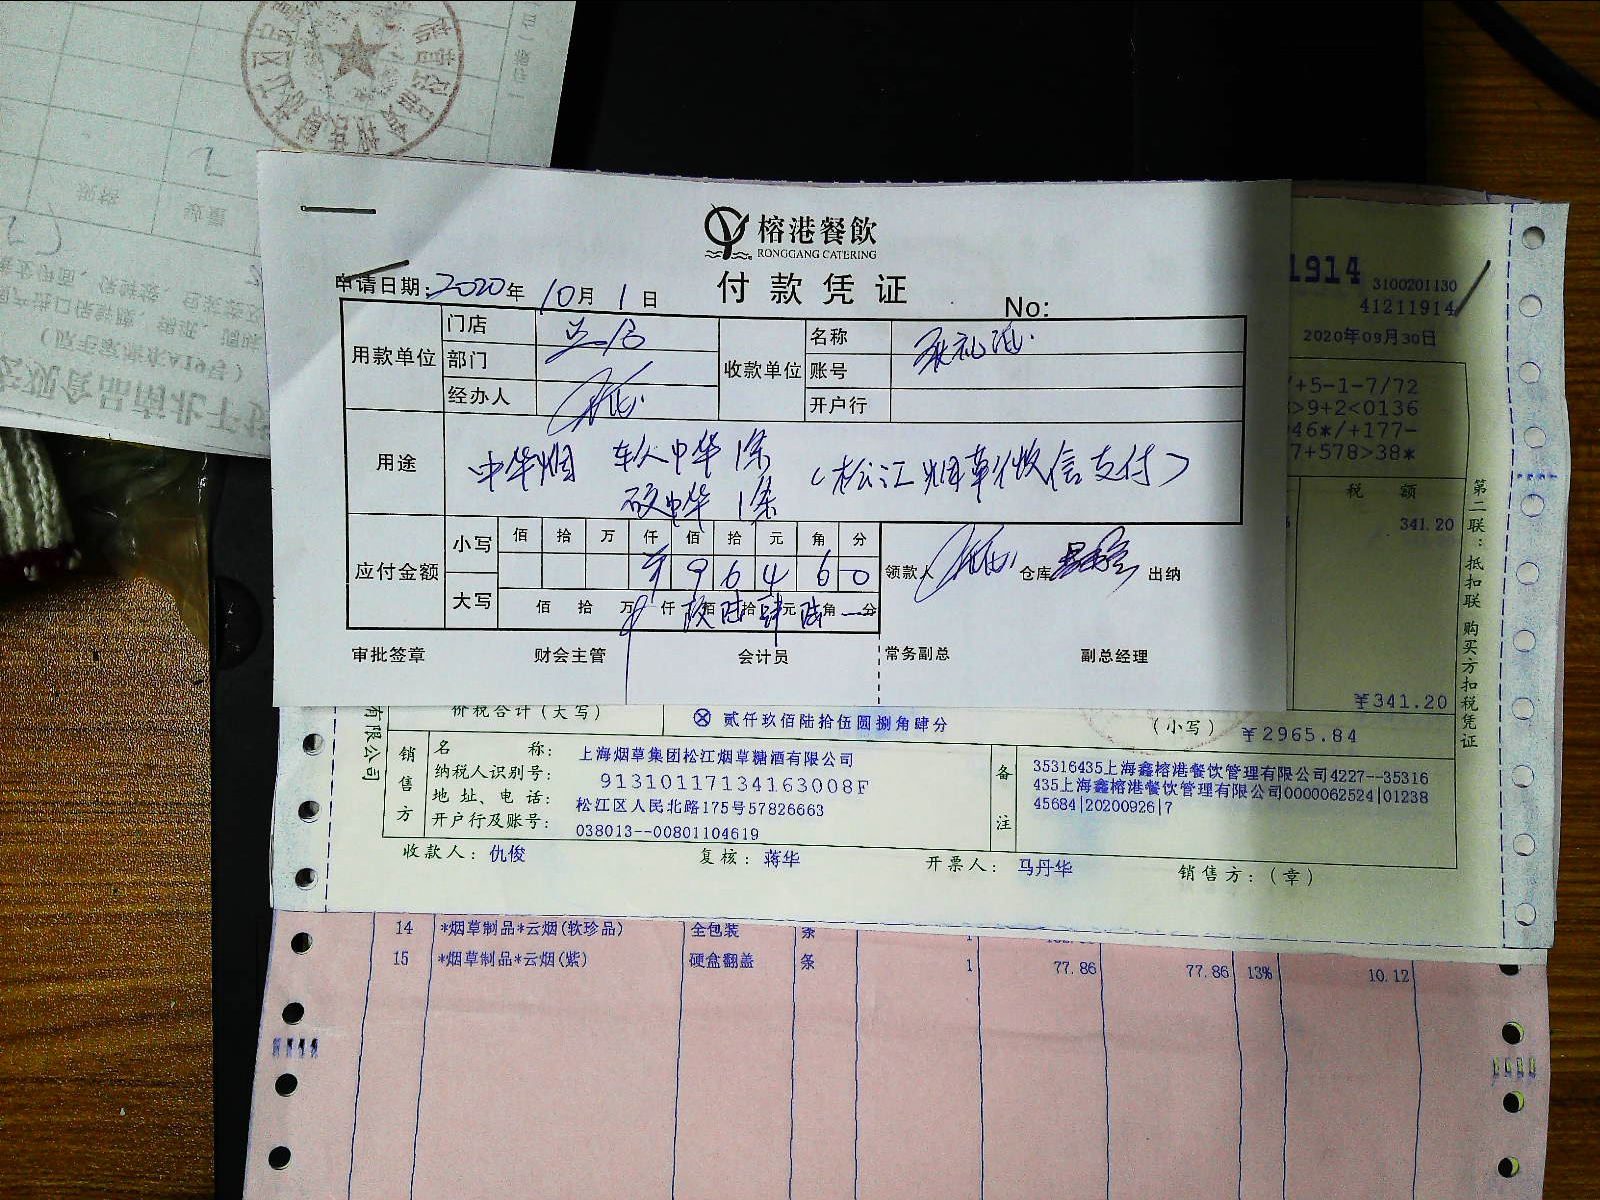 榕港餐飲
RONGGANG CATERING
付款凭证
申请日期:2020年10月1日
No:
用款单位 门店 部门 经办人
收款单位 名称 账号 开户行
用途 中华烟 软中华1条 (松江烟草微信支付)
硬中华1条
应付金额 小写 佰 拾 万 仟 佰 拾 元 角 分
¥ 9 6 4 6 0
大写 佰 拾 万 仟 玖佰 陆拾 肆元 陆角 一分
领款人 仓库 出纳
审批签章 财会主管 会计员 常务副总 副总经理
1914 3100201130
41211914
2020年09月30日
/+5-1-7/72
>9+2<0136
46*/+177-
7+578>38*
税 额
341.20
¥341.20
第二联:抵扣联 购买方扣税凭证
有限公司
价税合计(大写) ⊗ 贰仟玖佰陆拾伍圆捌角肆分 (小写) ¥2965.84
销售方
名 称: 上海烟草集团松江烟草糖酒有限公司
纳税人识别号: 91310117134163008F
地 址、电 话: 松江区人民北路175号57826663
开户行及账号: 038013--00801104619
备注
35316435上海鑫榕港餐饮管理有限公司4227--35316
435上海鑫榕港餐饮管理有限公司0000062524|01238
45684|20200926|7
收款人: 仇俊 复核: 蒋华 开票人: 马丹华 销售方:(章)
14 *烟草制品*云烟(软珍品) 全包装 条 1
15 *烟草制品*云烟(紫) 硬盒翻盖 条 1 77.86 77.86 13% 10.12